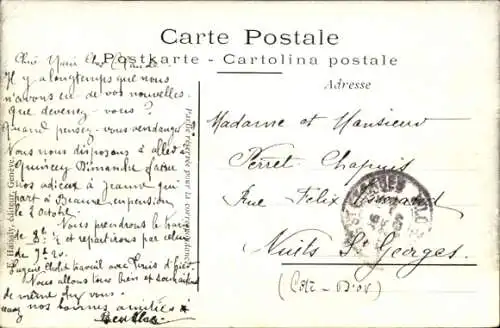 Carte Postale
Postkarte - Cartolina postale
Adresse
Il y a longtemps que nous
n'avons eu de vos nouvelles.
Que devenez-vous ?
Quand pensez-vous vendanger
Nous nous disposons à aller
Quincey Dimanche faire
nos adieux à Jeanne qui
part à Beaune en pension
le 8 Octobre.
Nous prendrons le train
de 8h ½ et repartirons par celui
de 9h 20.
Nous allons tous bien et souhaitons
de même chez vous.
nos bonnes amitiés
Partie réservée pour la correspondance
éditeur, Genève.
Madame et Monsieur
Perret-Chapuis
Rue Felix Tisserand
Nuits St Georges
(Côte-D'Or)